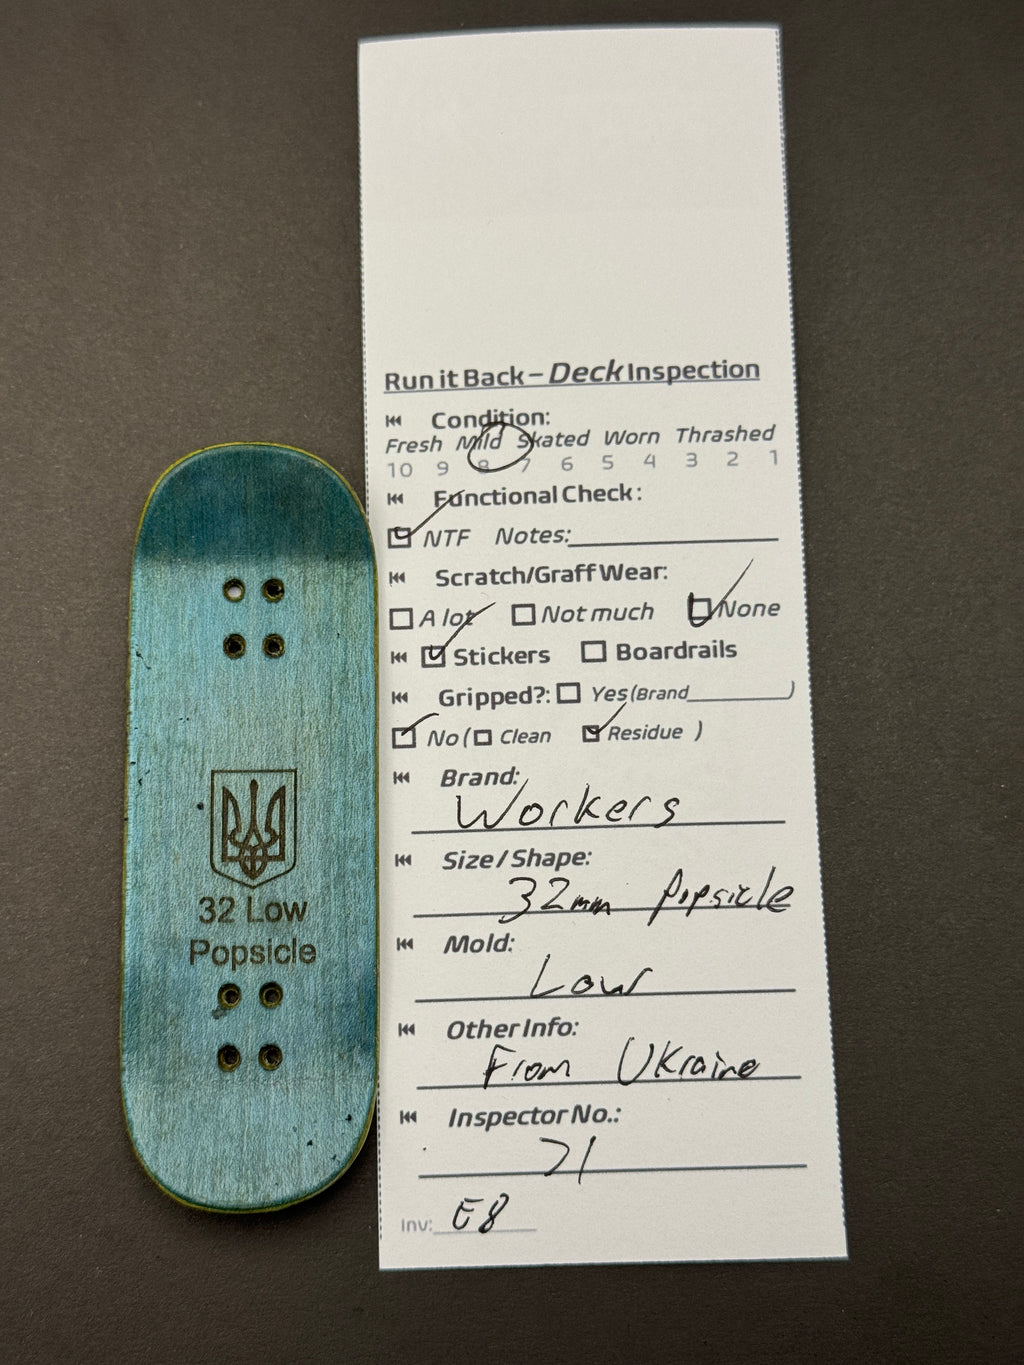 Run it Back – Deck Inspection
Condition:
Fresh Mild Skated Worn Thrashed
10 9 8 7 6 5 4 3 2 1
Functional Check:
NTF Notes:
Scratch/Graff Wear:
A lot Not much None
Stickers Boardrails
Gripped?: Yes (Brand )
No ( Clean Residue )
Brand:
Workers
Size / Shape:
32mm Popsicle
Mold:
Low
Other Info:
From Ukraine
Inspector No.:
Inv: E8
32 Low
Popsicle